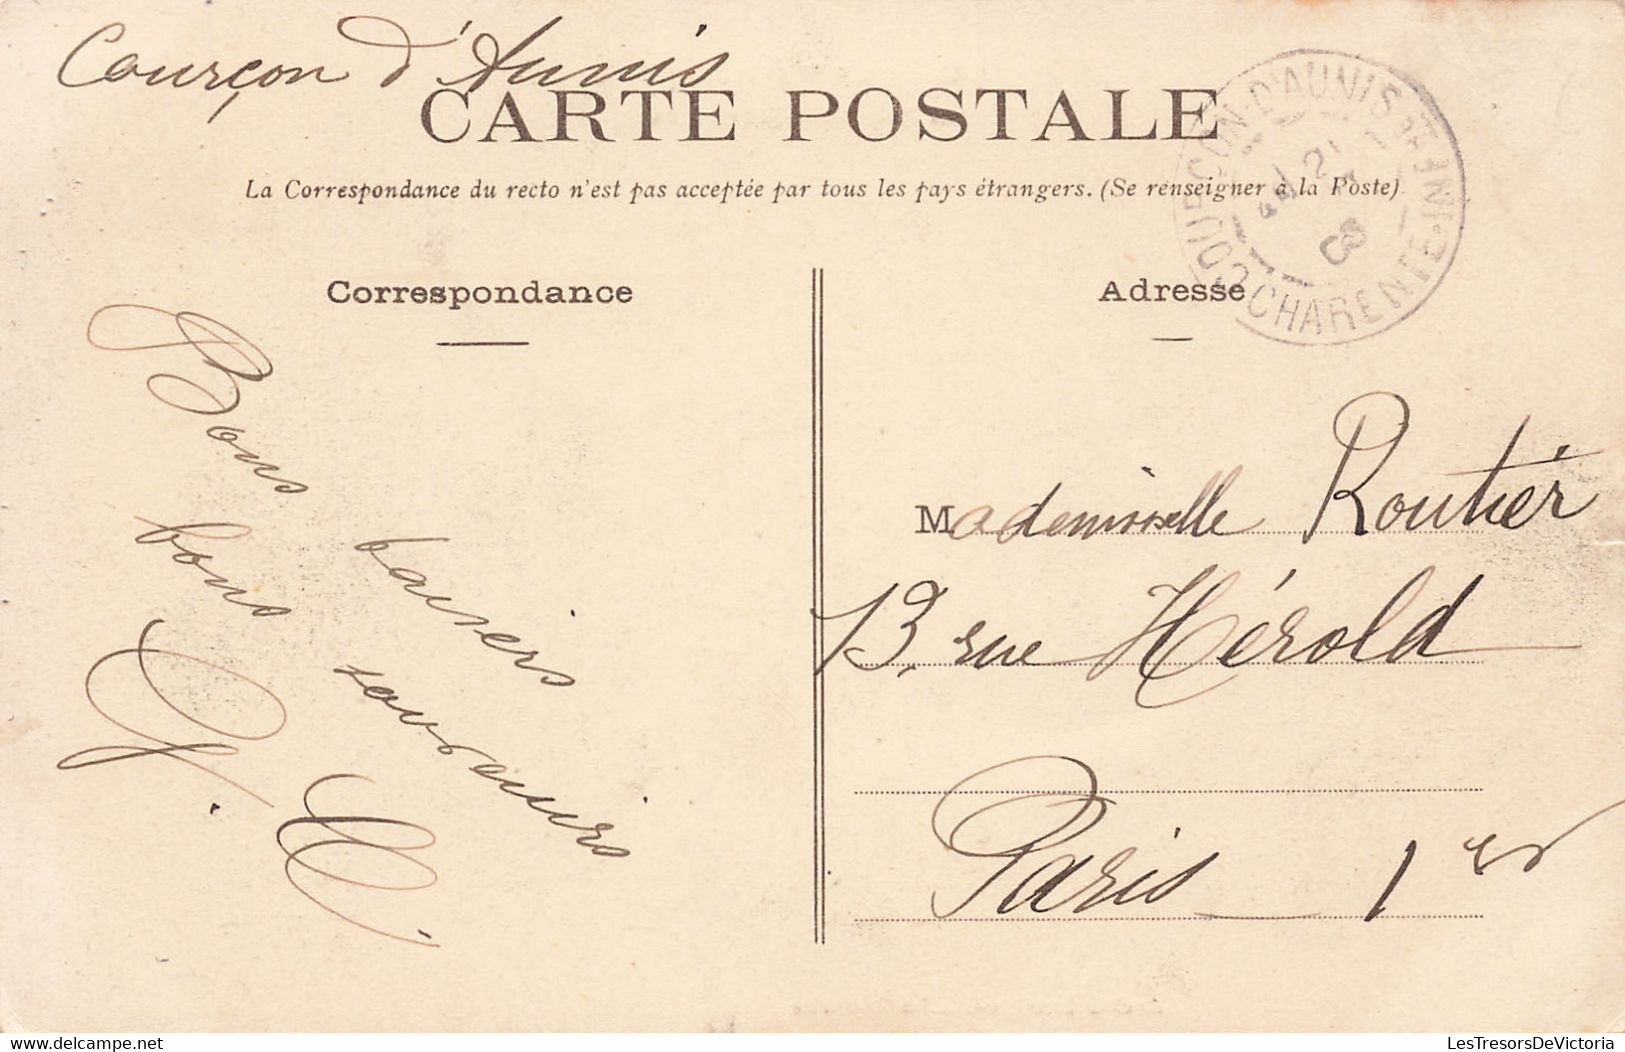 Courçon d'Aunis
CARTE POSTALE
La Correspondance du recto n'est pas acceptée par tous les pays étrangers. (Se renseigner à la Poste)
COURÇON-D'AUNIS
CHARENTE-INFRE
21
08
Correspondance
Bons baisers
bons souvenirs
Adresse
Mademoiselle Routier
13, rue Hérold
Paris 1er
delcampe.net
LesTresorsDeVictoria